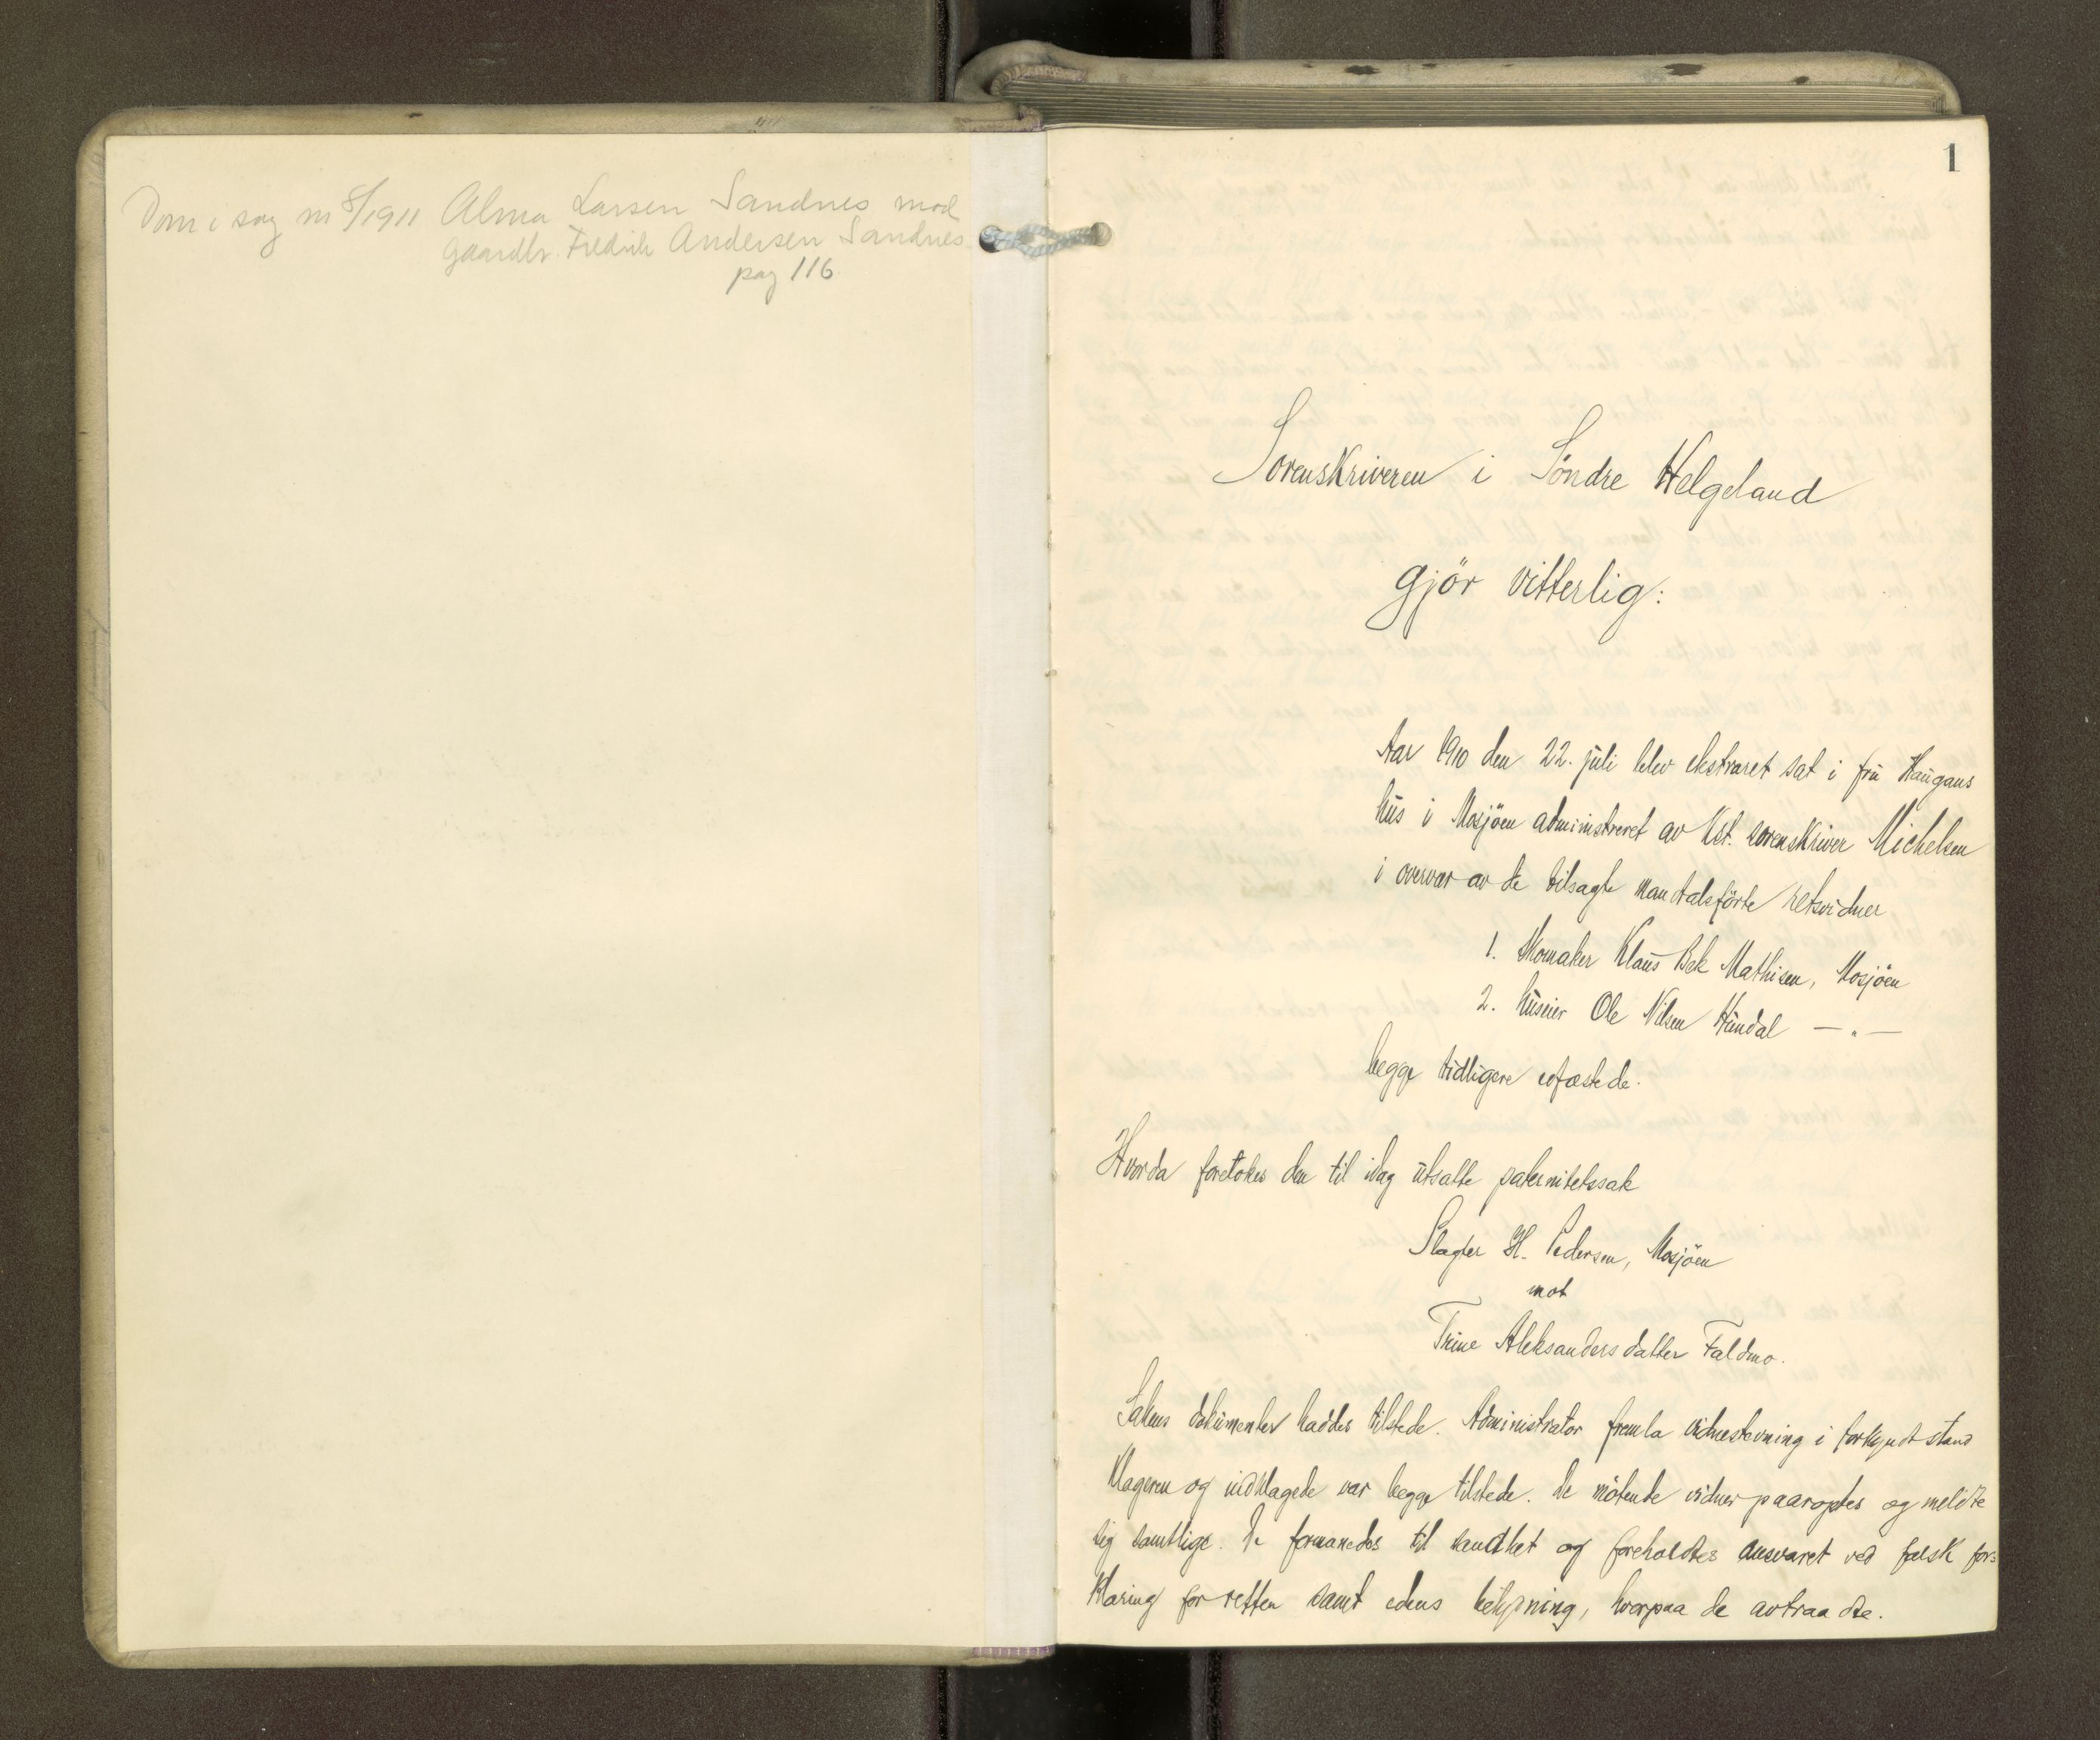 Dom i sag nr 8/1911 Alma Larsen Sandnes mod
gaardbr. Fredrik Andersen Sandnes
pag 116
1
Sorenskriveren i Söndre Helgeland
gjör vitterlig:
Aar 1910 den 22. juli blev ekstraret sat i fru Haugans
hus i Mosjöen administreret av kst. sorenskriver Michelsen
i overvær av de tilsagte mandtalsförte retsvidner
1. Skomaker Klaus Bek Mathisen, Mosjöen
2. huseier Ole Nilsen Hundal — „ —
begge tidligere edfæstede.
Hvorda foretokes den til idag utsatte paternitetssak
Slagter H. Pedersen, Mosjöen
mot
Trine Aleksandersdatter Faldmo.
Sakens dokumenter haddes tilstede. Administrator fremla vidnestevning i forkyndt stand
Klageren og indklagede var begge tilstede. De mötende vidner paaroptes og meldte
sig samtlige. De formanedes til sandhet og foreholdtes ansvaret ved falsk for=
klaring for retten samt edens betydning, hvorpaa de avtraadte.